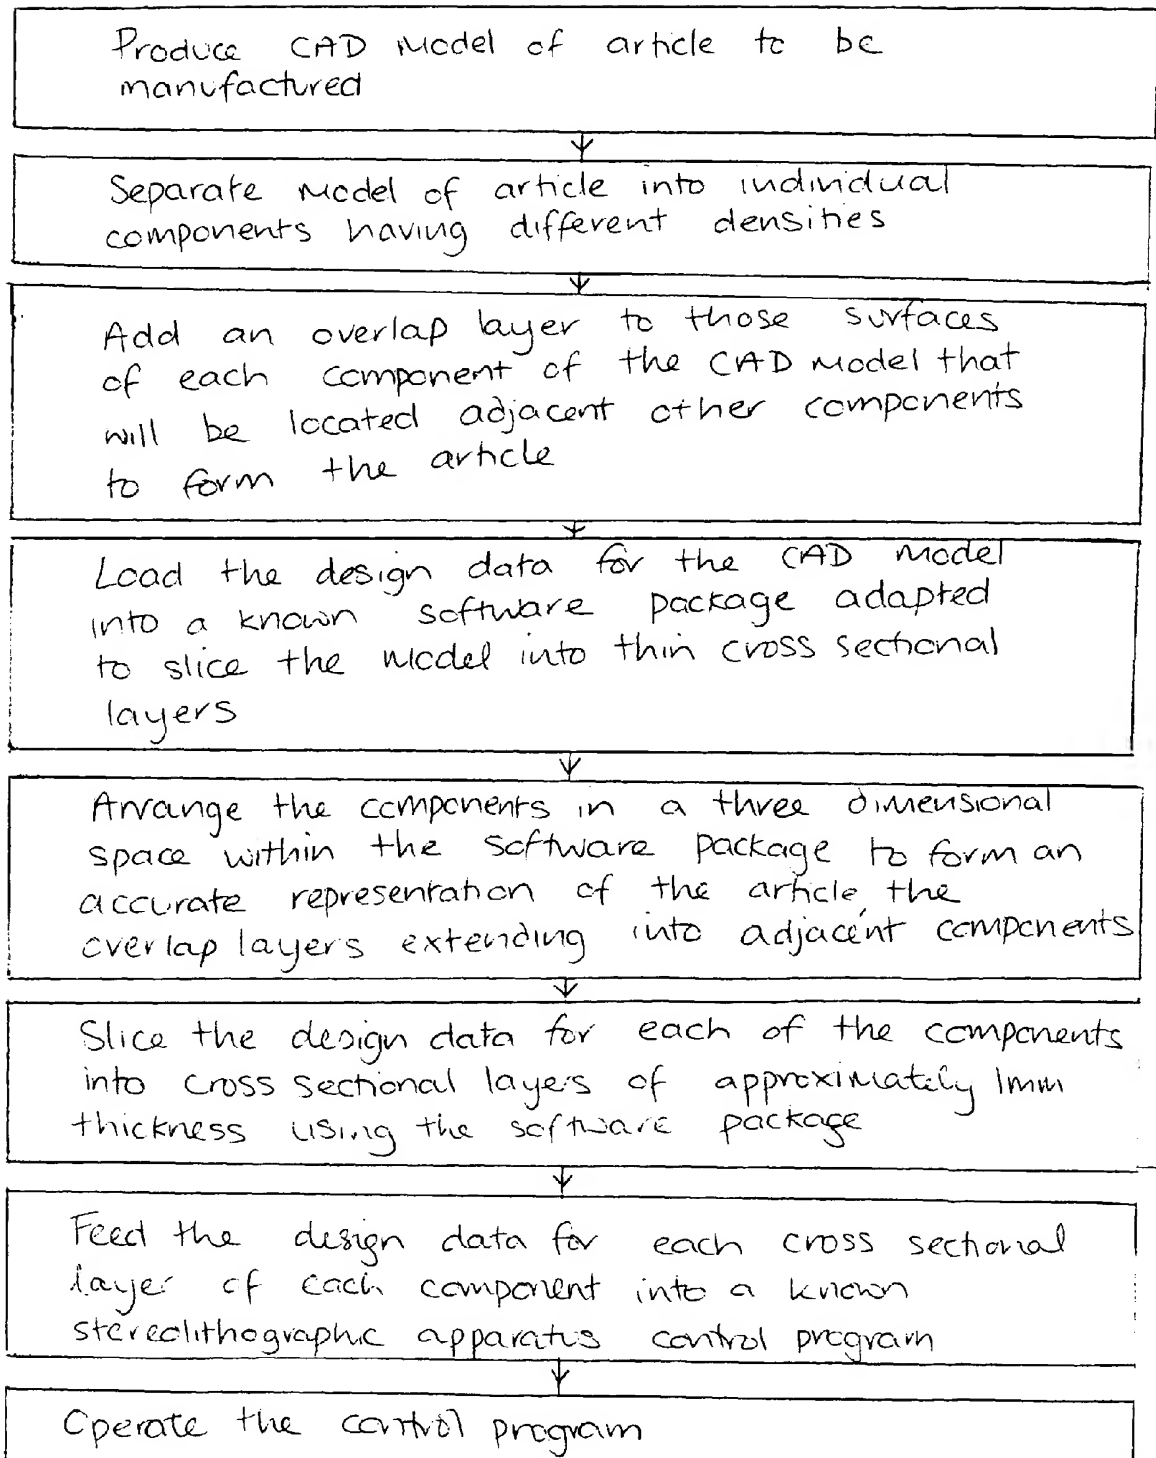 Produce CAD Model of article to be
manufactured
Separate Model of article into individual
components having different densities
Add an overlap layer to those surfaces
of each component of the CAD Model that
will be located adjacent other components
to form the article
Load the design data for the CAD Model
into a known software package adapted
to slice the Model into thin cross sectional
layers
Arrange the components in a three dimensional
space within the software package to form an
accurate representation of the article, the
overlap layers extending into adjacent components
Slice the design data for each of the components
into cross sectional layers of approximately 1mm
thickness using the software package
Feed the design data for each cross sectional
layer of each component into a known
stereolithographic apparatus control program
Operate the control program